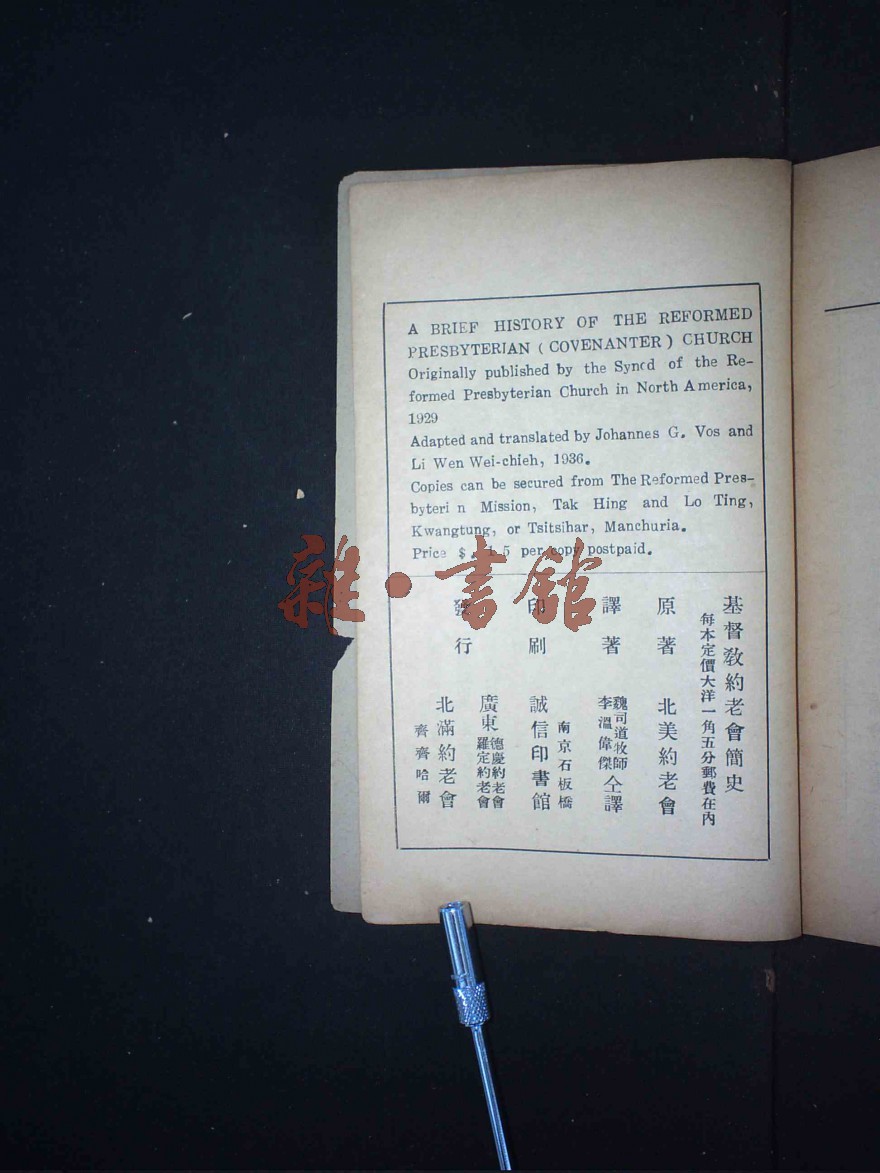 A BRIEF HISTORY OF THE REFORMED
PRESBYTERIAN ( COVENANTER ) CHURCH
Originally published by the Syncd of the Re-
formed Presbyterian Church in North America,
1929
Adapted and translated by Johannes G. Vos and
Li Wen Wei-chieh, 1936.
Copies can be secured from The Reformed Pres-
byteri n Mission, Tak Hing and Lo Ting,
Kwangtung, or Tsitsihar, Manchuria.
Price $ per copy postpaid.
雜·書館
基督敎約老會簡史
每本定價大洋一角五分郵費在內
原著 北美約老會
譯著 魏司道牧師
李溫偉傑 仝譯
印刷 南京石板橋
誠信印書館
發行 廣東 德慶約老會
羅定約老會
北滿約老會
齊齊哈爾